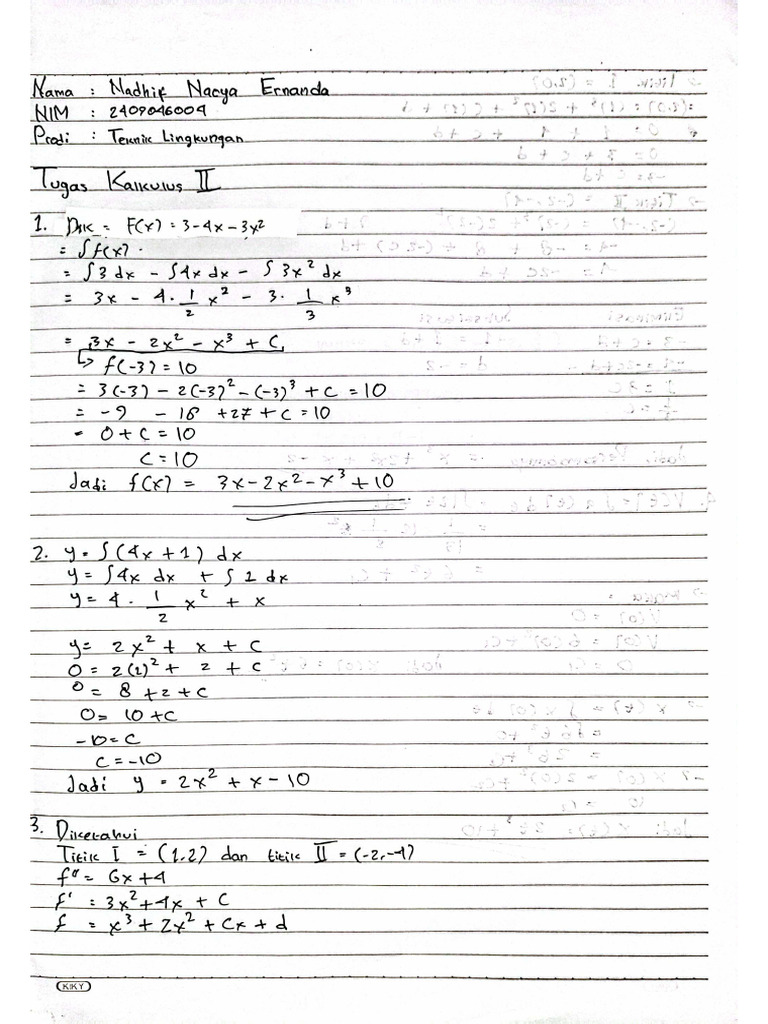 Nama : Nadhif Nacya Ernanda
NIM : 2409046004
Prodi : Teknik Lingkungan
Tugas Kalkulus II
1. Dik = F(x) = 3-4x-3x²
= ∫f(x).
= ∫3 dx - ∫4x dx - ∫ 3x² dx
= 3x - 4. 1/2 x² - 3. 1/3 x³
= 3x - 2x² - x³ + C
↳ f(-3) = 10
= 3(-3) - 2(-3)² - (-3)³ + C = 10
= -9 - 18 +27 + C = 10
= 0 + C = 10
C = 10
Jadi f(x) = 3x-2x²-x³+10
2. y = ∫(4x+1) dx
y = ∫4x dx + ∫ 1 dx
y = 4. 1/2 x² + x
y = 2x² + x + C
0 = 2(2)² + 2 + C
0 = 8 +2 + C
0 = 10 +C
-10 = C
C = -10
Jadi y = 2x² + x - 10
3. Diketahui
Titik I = (1,2) dan titik II = (-2,-1)
f'' = 6x+4
f' = 3x²+4x + C
f = x³ + 2x² + Cx + d
KIKY